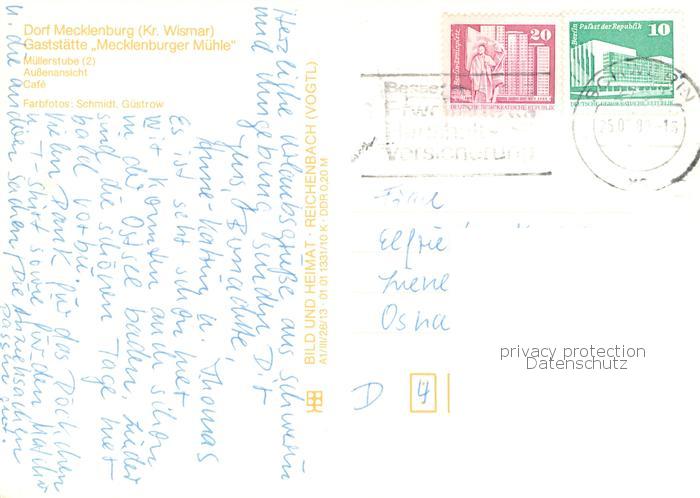 Dorf Mecklenburg (Kr. Wismar)
Gaststätte „Mecklenburger Mühle"
Müllerstube (2)
Außenansicht
Café
Farbfotos: Schmidt, Güstrow
Herzliche Urlaubsgrüße aus Schwerin
und Umgebung senden Dir
Anne-Katrin u. Thomas
Es ist sehr schön hier
Wir konnten auch schon
in der Ostsee baden. Leider
sind die schönen Tage hier
bald vorbei.
Vielen Dank für das Röckchen
u. T-Shirt sowie für den
u. die anderen Sachen. Die Anziehsachen
passen gut.
BILD UND HEIMAT · REICHENBACH (VOGTL)
A1/III/26/13 · 01 01 1331/10 K · DDR 0,20 M
20
DEUTSCHE DEMOKRATISCHE REPUBLIK
Berlin Palast der Republik
10
DEUTSCHE DEMOKRATISCHE REPUBLIK
Haushalt-
versicherung
Frau
Elfrie
Osna
privacy protection
Datenschutz
D 4